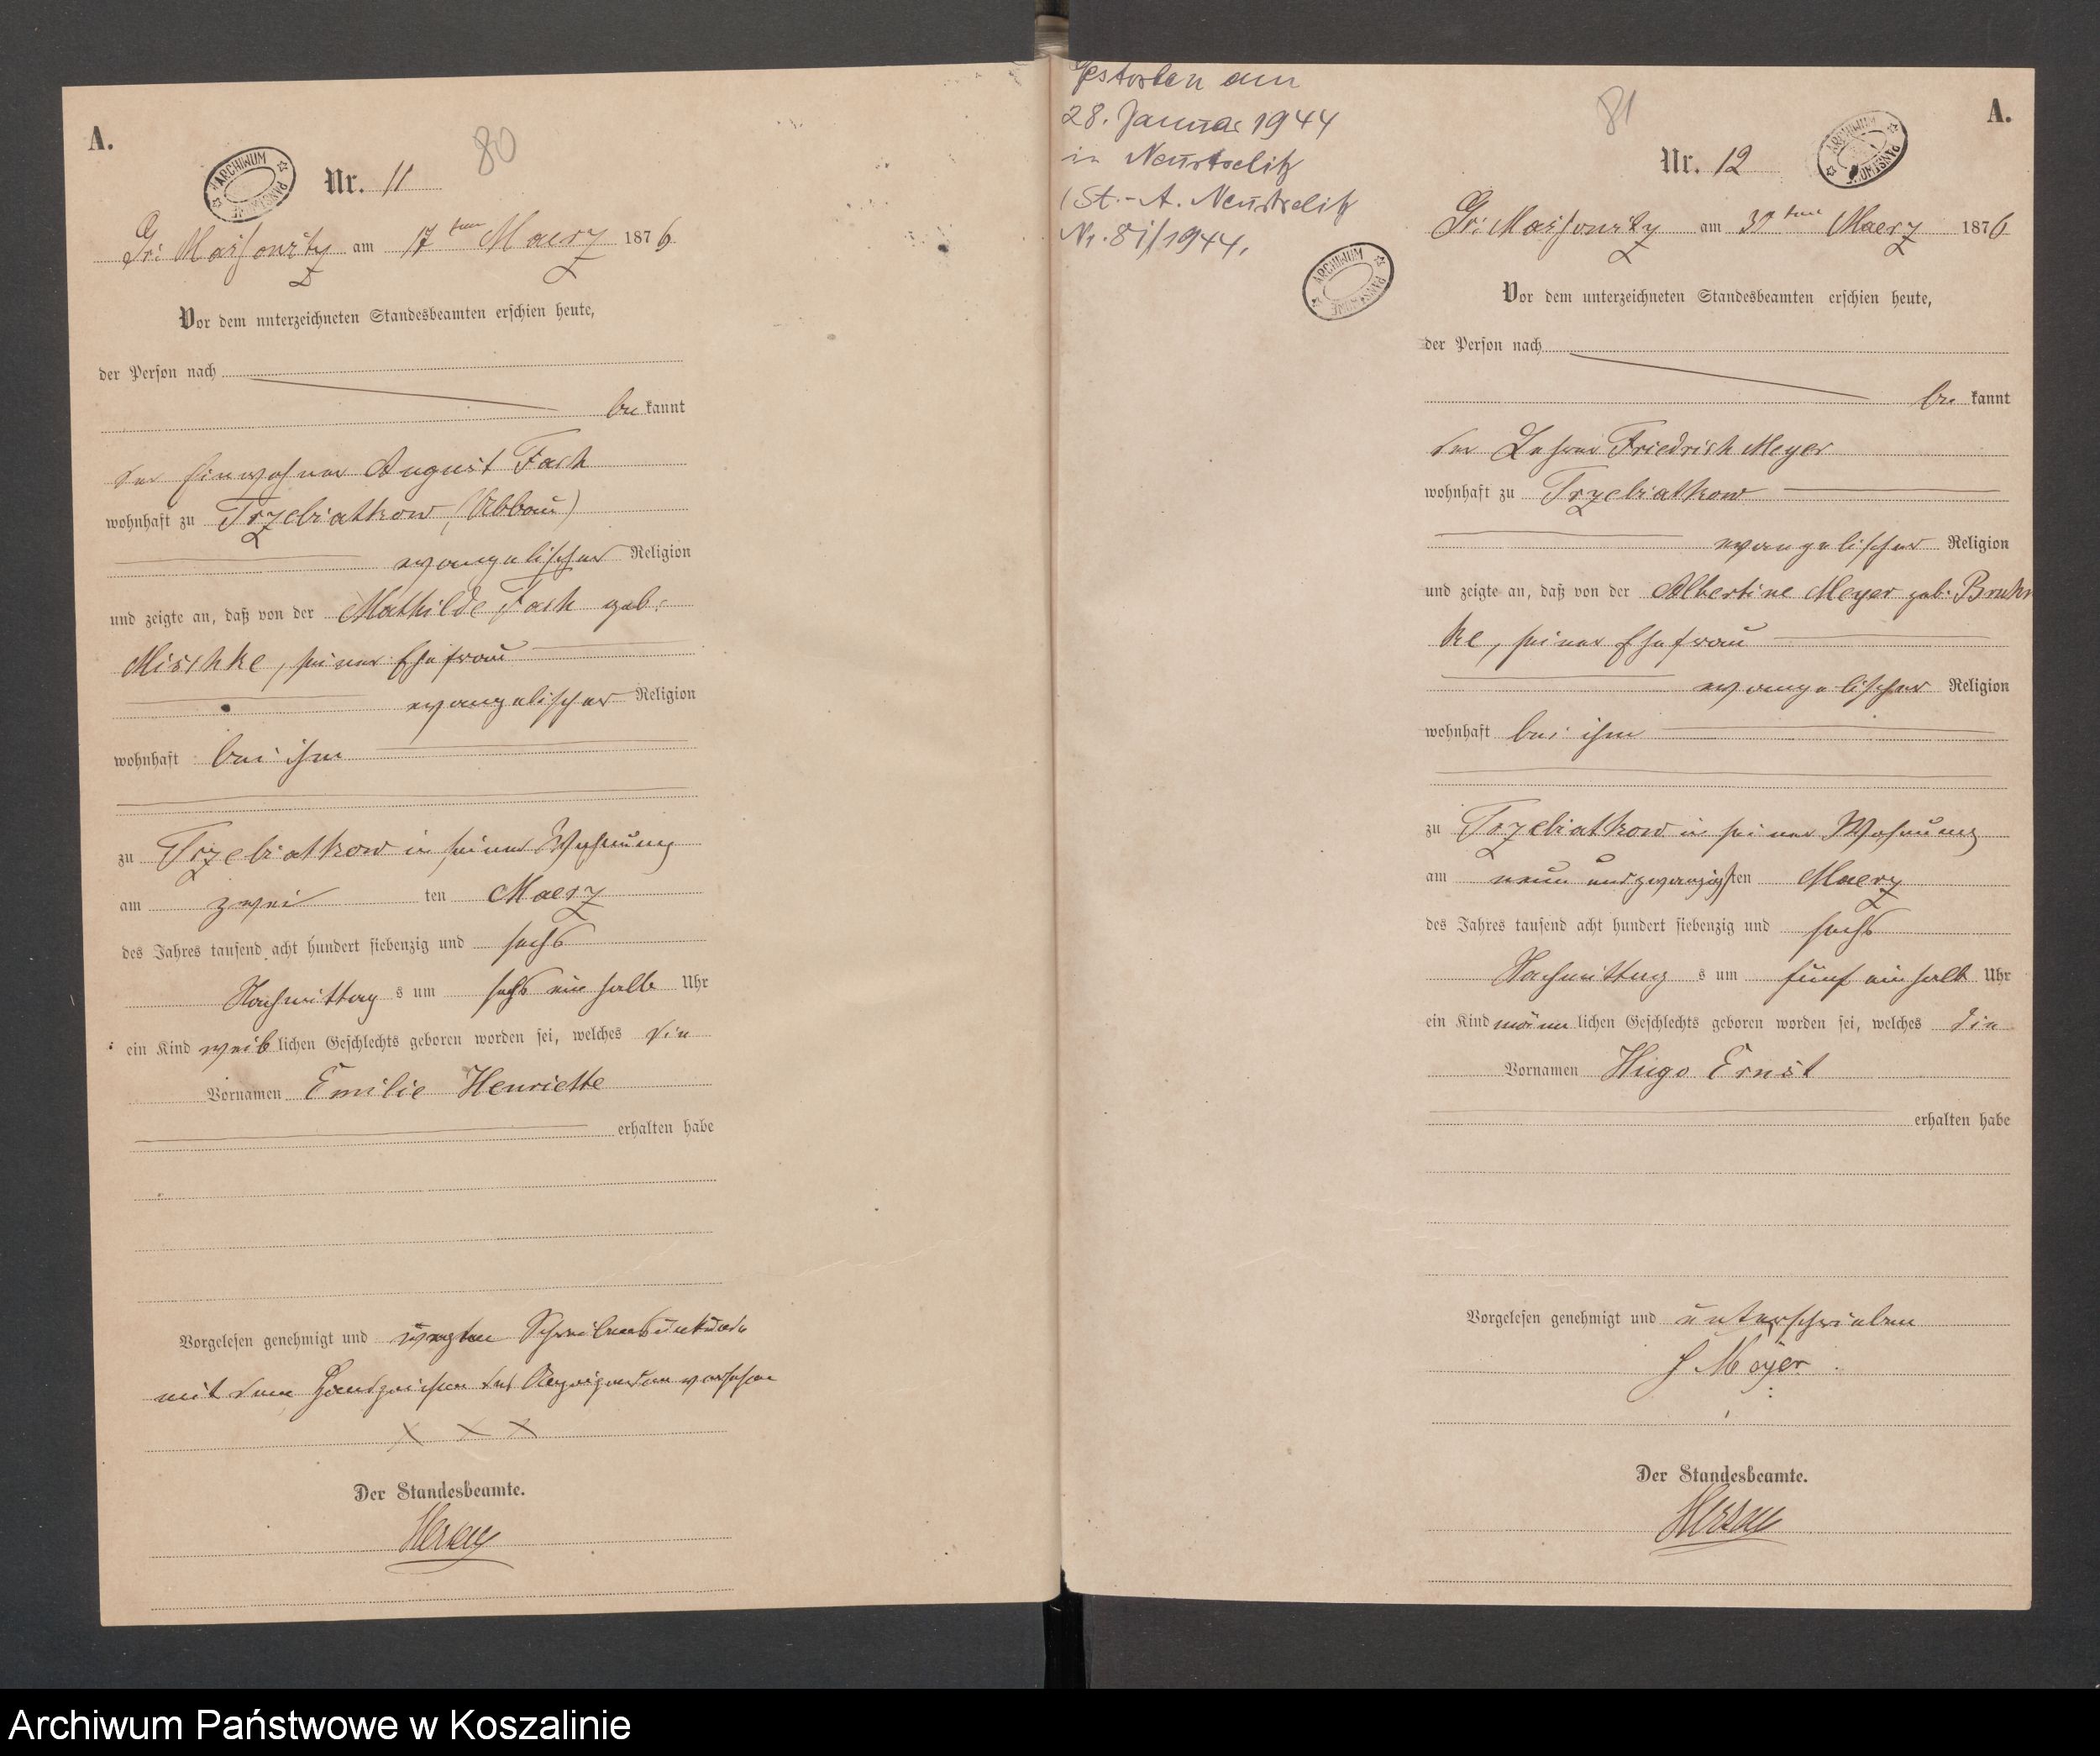 A.
80
ARCHIWUM PAŃSTWOWE
Nr. 11
Gr: Massowitz am 17ten Maerz 1876
Vor dem unterzeichneten Standesbeamten erschien heute,
der Person nach
be kannt
der Einwohner August Fach
wohnhaft zu Trzebiatkow (Abbau)
evangelischer Religion
und zeigte an, daß von der Mathilde Fach geb:
Mischke, seiner Ehefrau
evangelischer Religion
wohnhaft bei ihm
zu Trzebiatkow in seiner Wohnung
am zwei ten Maerz
des Jahres tausend acht hundert siebenzig und sechs
Nachmittag s um sechs ein halb Uhr
ein Kind weib lichen Geschlechts geboren worden sei, welches die
Vornamen Emilie Henriette
erhalten habe
Vorgelesen genehmigt und wegen Schreibensunkunde
mit dem Handzeichen des Anzeigenden versehen
X X X
Der Standesbeamte.
Gestorben am
28. Januar 1944
in Neustrelitz
(St.-A. Neustrelitz
Nr. 81/1944.
ARCHIWUM PAŃSTWOWE
81
A.
ARCHIWUM PAŃSTWOWE
Nr. 12
Gr: Massowitz am 31ten Maerz 1876
Vor dem unterzeichneten Standesbeamten erschien heute,
der Person nach
be kannt
der Lehrer Friedrich Meyer
wohnhaft zu Trzebiatkow
evangelischer Religion
und zeigte an, daß von der Albertine Meyer geb: Bruhn
ke, seiner Ehefrau
evangelischer Religion
wohnhaft bei ihm
zu Trzebiatkow in seiner Wohnung
am neun und zwanzigsten Maerz
des Jahres tausend acht hundert siebenzig und sechs
Nachmittag s um fünf ein halb Uhr
ein Kind männ lichen Geschlechts geboren worden sei, welches die
Vornamen Hugo Ernst
erhalten habe
Vorgelesen genehmigt und unterschrieben
F Meyer
Der Standesbeamte.
Archiwum Państwowe w Koszalinie